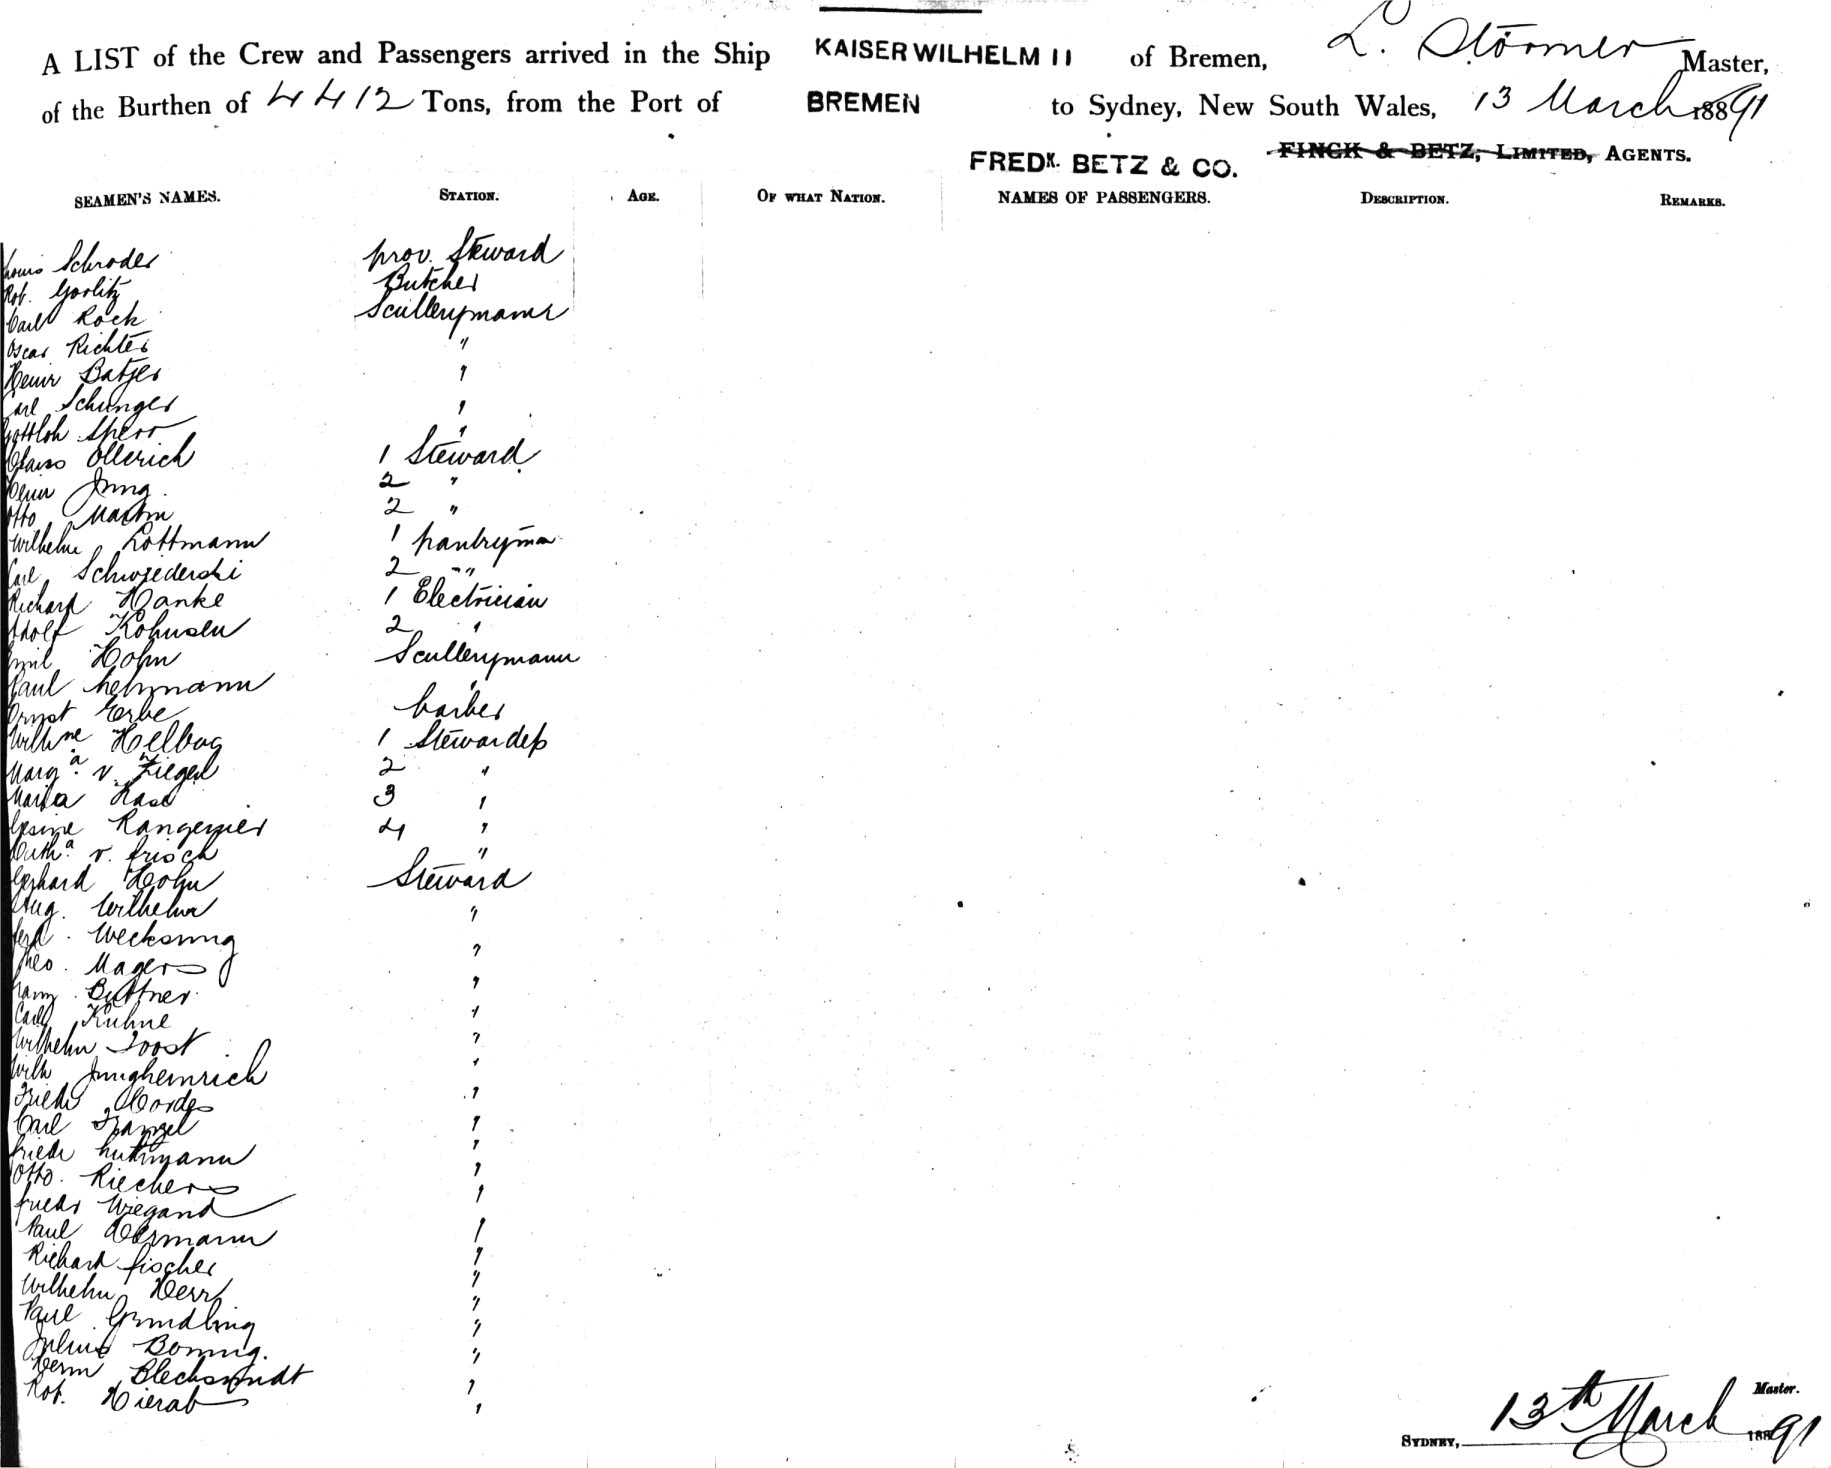 A LIST of the Crew and Passengers arrived in the Ship KAISER WILHELM II of Bremen, L. Störmer Master,
of the Burthen of 4412 Tons, from the Port of BREMEN to Sydney, New South Wales, 13 March 18891
FREDK. BETZ & CO. FINCK & BETZ, LIMITED, AGENTS.
SEAMEN'S NAMES. STATION. AGE. OF WHAT NATION. NAMES OF PASSENGERS. DESCRIPTION. REMARKS.
Louis Schroder prov. Steward
Rob. Gorlitz Butcher
Carl Rock Scullerymann
Oscar Richter "
Heinr Batjer "
Carl Schunger "
Gottlob Sperr "
Claus Ollerich 1 Steward
Heinr Jung 2 "
Otto Martin 2 "
Wilhelm Lottmann 1 pantryman
Carl Schwiederski 2 "
Richard Hanke 1 Electrician
Adolf Kohnsen 2 "
Emil Hohn Scullerymann
Paul Lehmann "
Ernst Erbe barber
Wilhne Helbog 1 Stewardess
Marga. v. Ziegen 2 "
Maria Hase 3 "
Gesine Rangemier 4 "
v. Frisch "
Gerhard Hohn Steward
Aug. Wilhelm "
Ferd. Wecksung "
Theo. Magers "
Franz Buttner "
Carl Kuhne "
Wilhelm Joost "
Wilh Jungheinrich "
Friedr Cordes "
Carl "
Friedr Luttmann "
Otto. Riechers "
Friedr Wiegand "
Paul "
Richard Fischer "
Wilhelm Herr "
Paul Grundling "
Julius Bonnig. "
Herm Blechsmidt "
Rob. Hierab "
Master.
SYDNEY, 13th March 18891